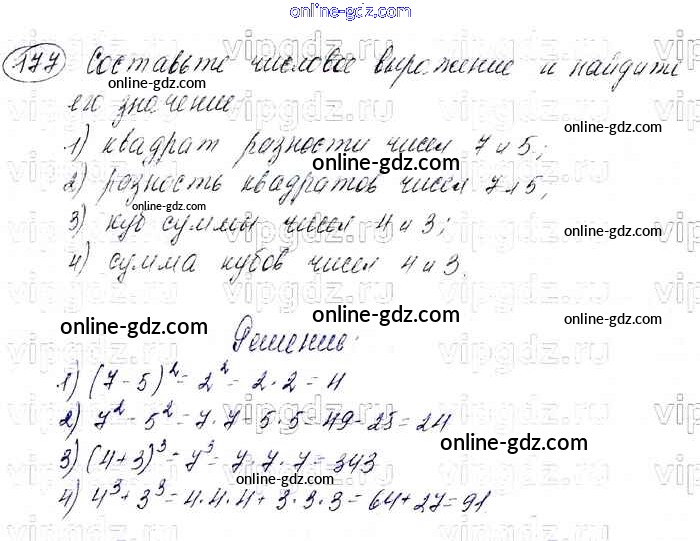 online-gdz.com
177 Составьте числовое выражение и найдите
его значение:
1) квадрат разности чисел 7 и 5;
2) разность квадратов чисел 7 и 5;
3) куб суммы чисел 4 и 3;
4) сумма кубов чисел 4 и 3.
Решение:
1) (7-5)² = 2² = 2·2 = 4
2) 7² - 5² = 7·7 - 5·5 = 49 - 25 = 24
3) (4+3)³ = 7³ = 7·7·7 = 343
4) 4³ + 3³ = 4·4·4 + 3·3·3 = 64 + 27 = 91
online-gdz.com
online-gdz.com
online-gdz.com
online-gdz.com
online-gdz.com
online-gdz.com
online-gdz.com
online-gdz.com
online-gdz.com
online-gdz.com
vipgdz.ru
vipgdz.ru